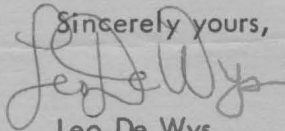 Sincerely yours,
Leo De Wys
Leo De Wys